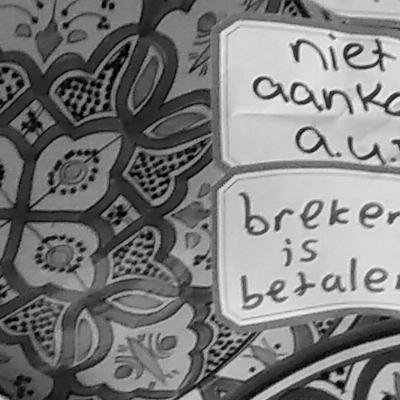 niet
aanko
a.u.
breken
is
betalen